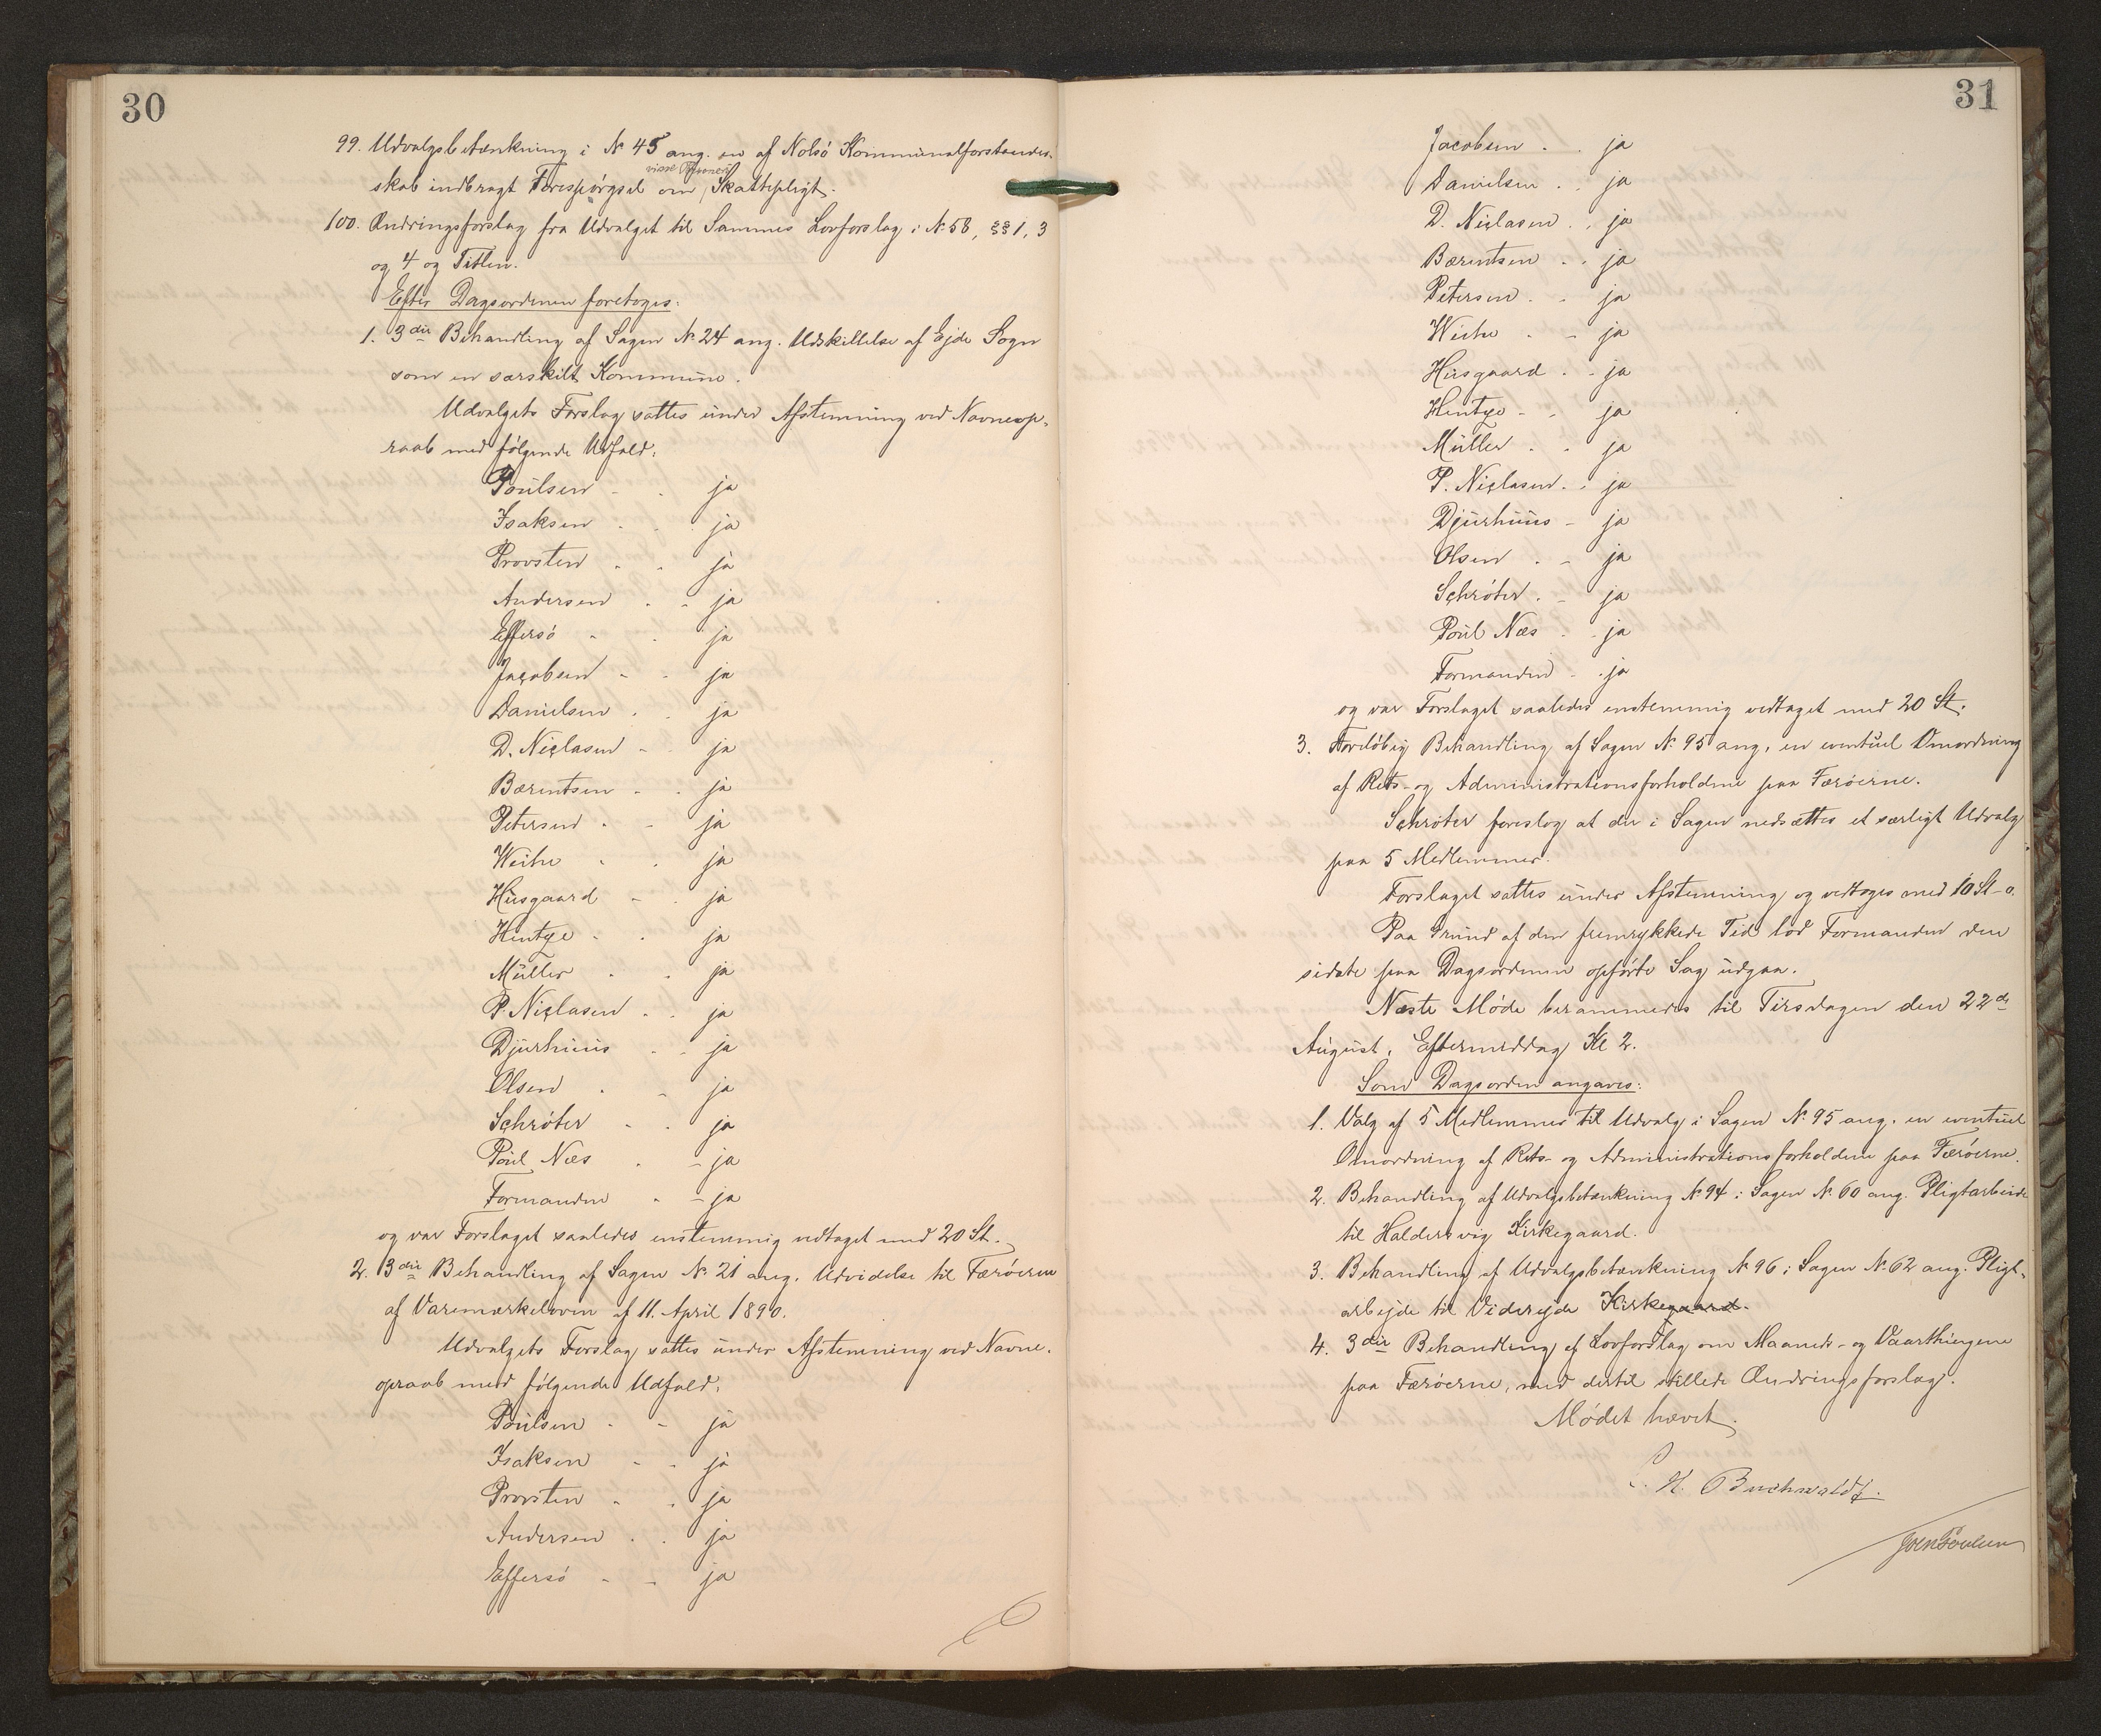 30
99. Udvalgsbetænkning i № 45 ang. en af Nolsö Kommunalforstander-
skab indbragt Forespörgsel om visse Personers Skattepligt.
100. Ændringsforslag fra Udvalget til Sammes Lovforslag i № 58, §§ 1, 3
og 4 og Titlen.
Efter Dagsordenen foretoges:
1. 3die Behandling af Sagen № 24 ang. Udskillelse af Ejde Sogn
som en særskilt Kommune.
Udvalgets Forslag sattes under Afstemning ved Navneop-
raab med fölgende Udfald:
Poulsen - - ja
Isaksen - - ja
Provsten - - ja
Andersen - - ja
Effersö - - ja
Jacobsen - - ja
Danielsen - - ja
D. Niclasen - - ja
Bærentsen - - ja
Petersen - - ja
Weihe - - ja
Husgaard - - ja
Hentze - - ja
Müller - - ja
P. Niclasen - - ja
Djurhuus - - ja
Olsen - - ja
Schröter - - ja
Poul Næs - - ja
Formanden - - ja
og var Forslaget saaledes enstemmig vedtaget med 20 St.
2. 3die Behandling af Sagen № 21 ang. Udvidelse til Færöerne
af Varemærkeloven af 11. April 1890.
Udvalgets Forslag sattes under Afstemning ved Navne-
opraab med fölgende Udfald:
Poulsen - - ja
Isaksen - - ja
Provsten - - ja
Andersen - - ja
Effersö - - ja
31
Jacobsen - - ja
Danielsen - - ja
D. Niclasen - - ja
Bærentsen - - ja
Petersen - - ja
Weihe - - ja
Husgaard - - ja
Hentze - - ja
Müller - - ja
P. Niclasen - - ja
Djurhuus - ja
Olsen - - ja
Schröter - - ja
Poul Næs - - ja
Formanden - - ja
og var Forslaget saaledes enstemmig vedtaget med 20 St.
3. Forelöbig Behandling af Sagen № 95 ang. en eventuel Omordning
af Rets- og Administrationsforholdene paa Færöerne.
Schröter foreslog at der i Sagen nedsættes et særligt Udvalg
paa 5 Medlemmer.
Forslaget sattes under Afstemning og vedtoges med 10 St - 0.
Paa Grund af den fremrykkede Tid lod Formanden den
sidste paa Dagsordenen opförte Sag udgaa.
Næste Möde berammedes til Tirsdagen den 22de
August, Eftermiddag Kl 2.
Som Dagsorden angaves:
1. Valg af 5 Medlemmer til Udvalg i Sagen № 95 ang. en eventuel
Omordning af Rets- og Administrationsforholdene paa Færöerne.
2. Behandling af Udvalgsbetænkning № 94 i Sagen № 60 ang. Pligtarbeide
til Haldersvig Kirkegaard.
3. Behandling af Udvalgsbetænkning № 96 i Sagen № 62 ang. Pligt-
arbejde til Viderejde Kirkegaard.
4. 3die Behandling af Lovforslag om Maaneds- og Vaarthingene
paa Færöerne, med dertil stillede Ændringsforslag.
Mödet hævet.
C. H. Buchwaldt.
Joen Poulsen